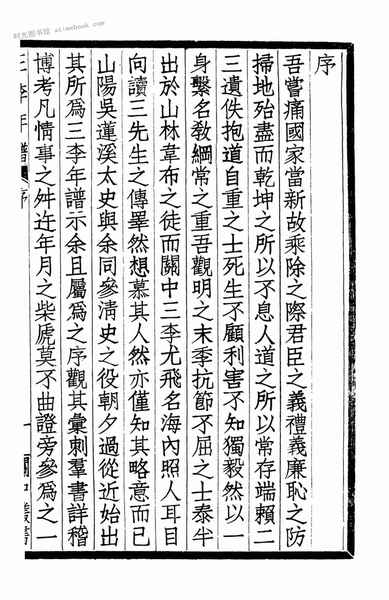 时光图书馆 alimebook.com
序
吾嘗痛國家當新故乘除之際君臣之義禮義廉恥之防
掃地殆盡而乾坤之所以不息人道之所以常存端賴二
三遺佚抱道自重之士死生不顧利害不知獨毅然以一
身繫名敎綱常之重吾觀明之末季抗節不屈之士泰半
出於山林韋布之徒而關中三李尤飛名海內照人耳目
向讀三先生之傳睪然想慕其人然亦僅知其略意而已
山陽吳蓮溪太史與余同參淸史之役朝夕過從近始出
其所爲三李年譜示余且屬爲之序觀其彙刺羣書詳稽
博考凡情事之舛迕年月之柴虒莫不曲證旁參爲之一
三李年譜 序 一 關中叢書